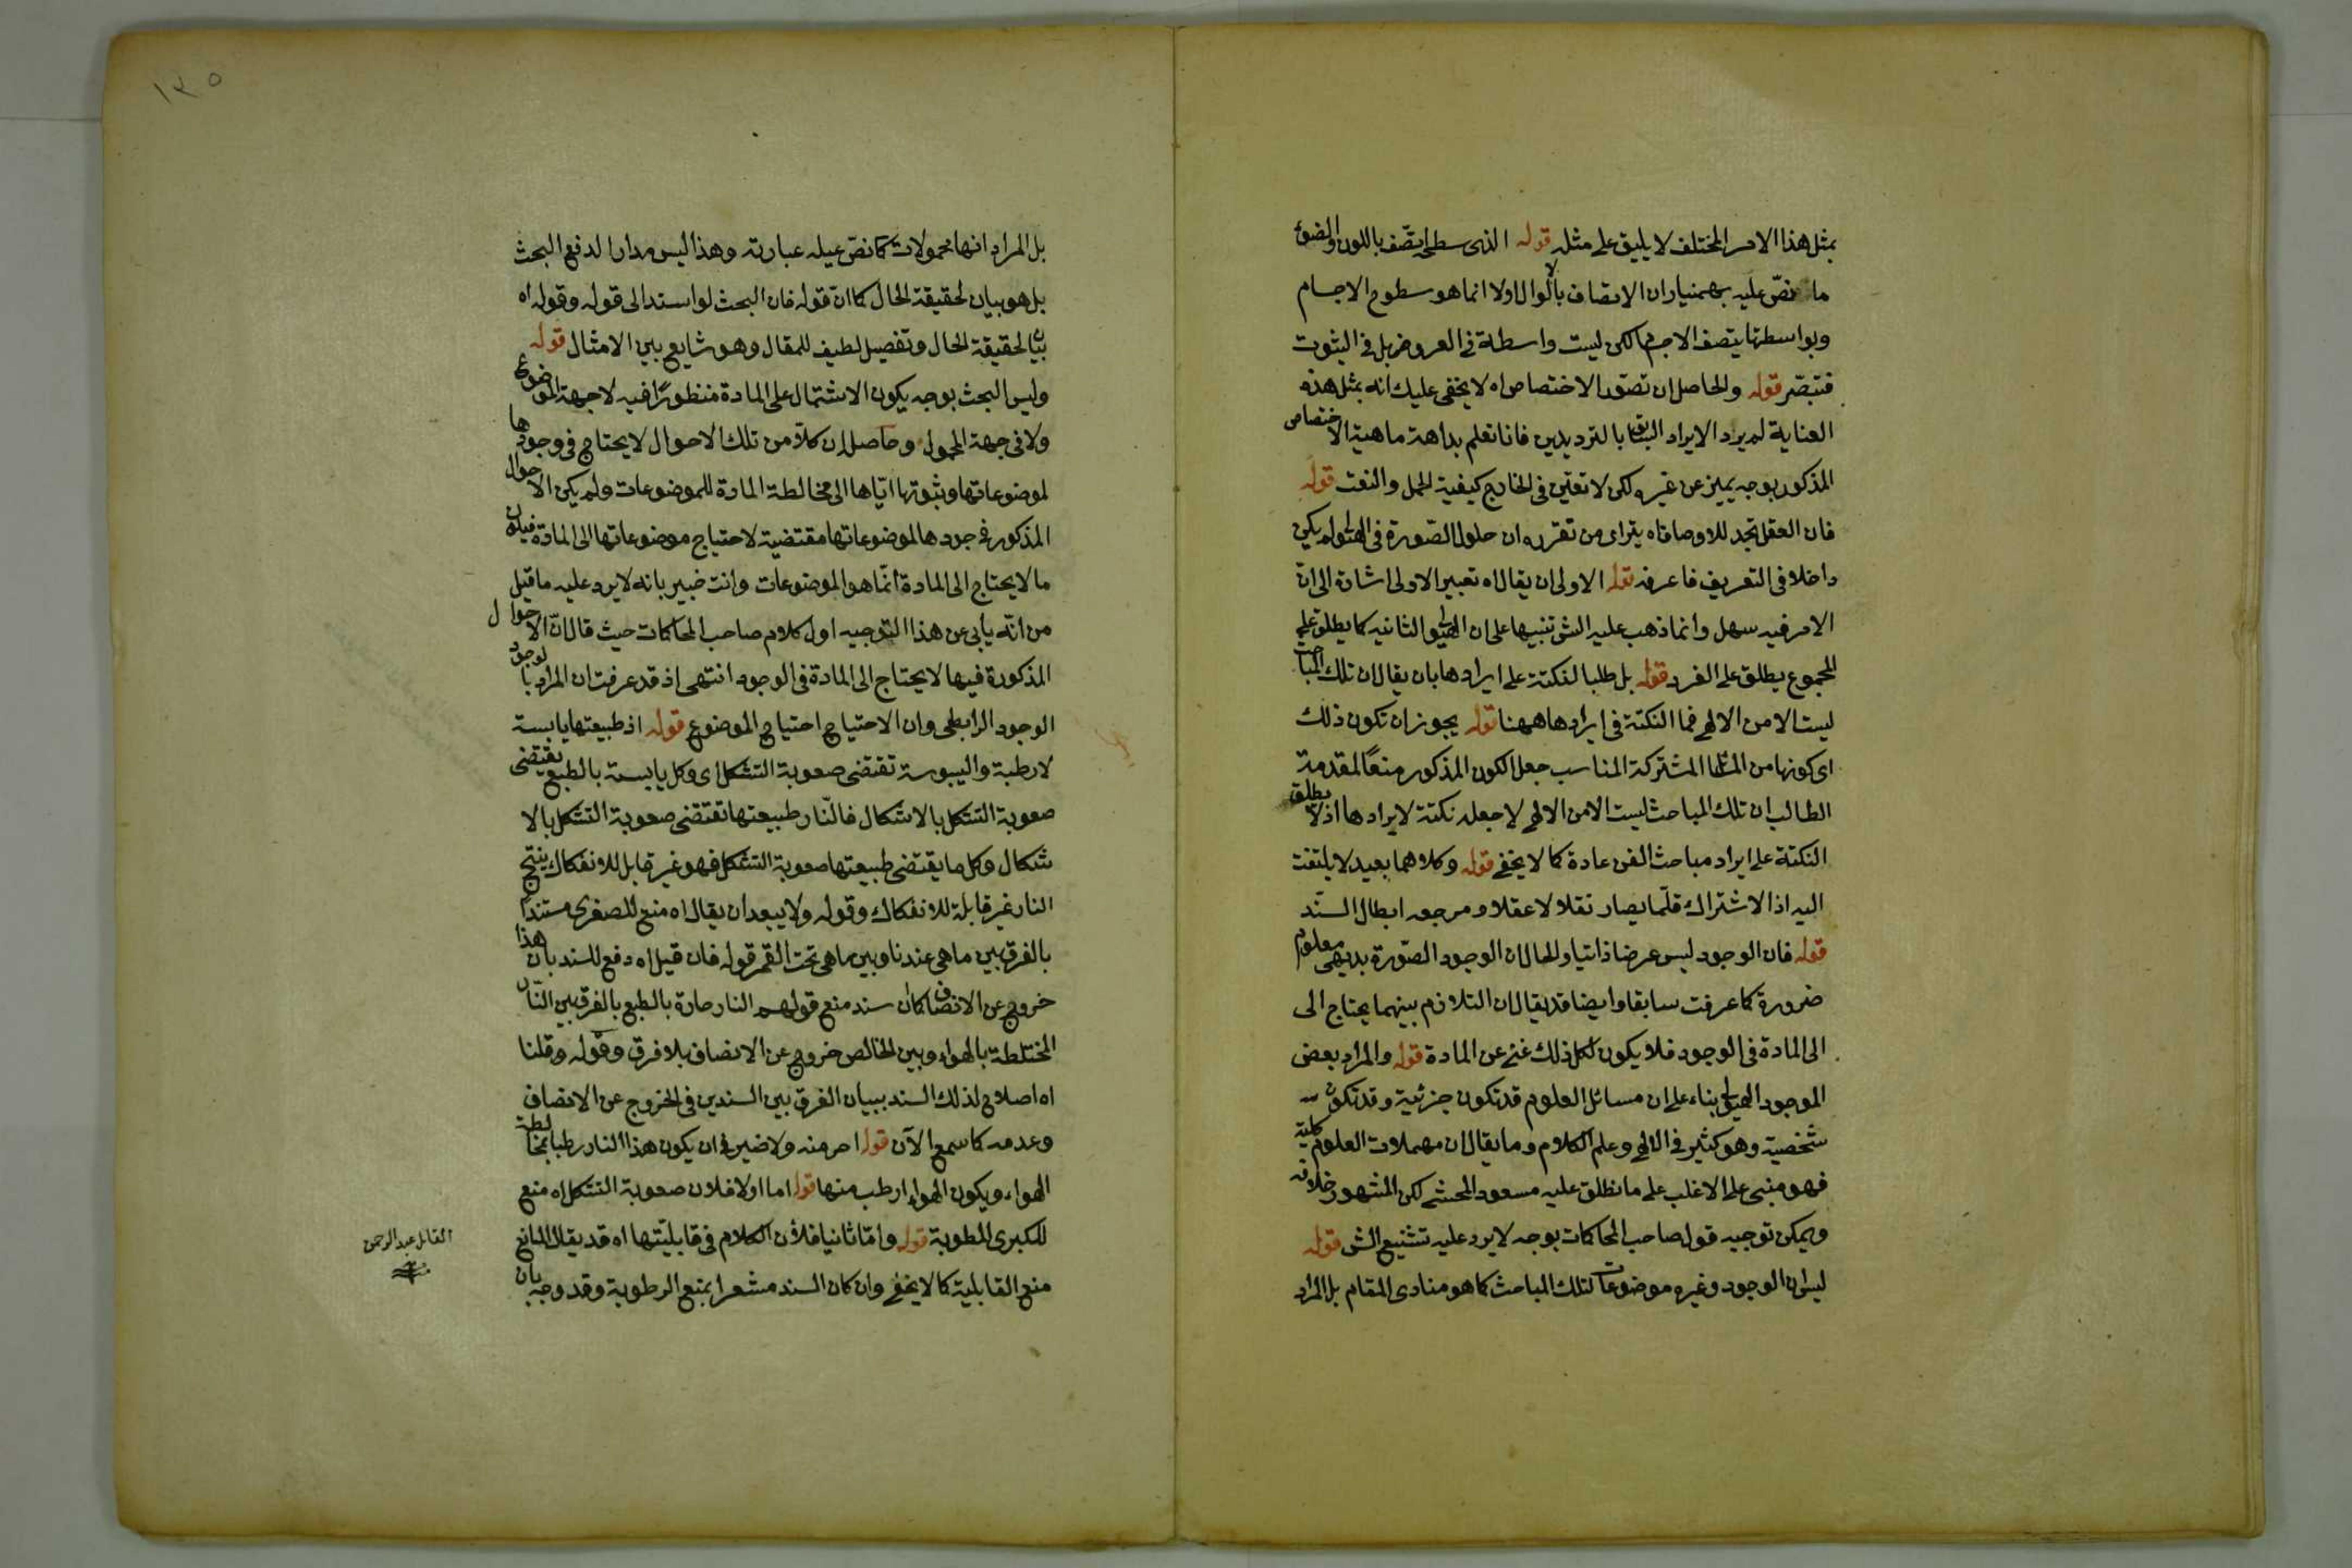 بمثل هذا الامر المختلف لا يليق على مثله قوله الذى سطحه ايتصف باللون والضوء
ما نص عليه بهمنيار ان الاتصاف بالوال اولا انما هو سطوح الاجسام
وبواسطتها يتصف الاجسام لكن ليست واسطة فى العروض بل فى الثبوت
فتبصر قوله والحاصل ان تصور الاختصاص اه لا يخفى عليك انه بمثل هذه
العناية لم يرد الايراد السابق بالترديدين فانا نعلم بداهة ماهية الاختصاص
المذكور بوجه يميز عن غيره لكن لا تعين فى الخارج كيفية الحمل والنعت قوله
فان العقل تجد للاوصاف اه يتراى من تقرره ان حلول الصورة فى الهيولى لم يكن
داخلا فى التعريف فاعرفه قوله الاولى ان يقال اه تعبير الاولى اشارة الى ان
الامر فيه سهل وانما ذهب عليه الش تنبيها على ان الهيولى الثانيه كما يطلق على
المجموع يطلق على الفرد قوله بل طلبا لنكتة على ايرادها بان يقال ان تلك المباحث
ليست الا من الالهى فما النكتة فى ايرادها ههنا قوله يجوز ان تكون ذلك
اى كونها من المسائل المشتركة المناسب جعل الكون المذكور منعا لمقدمة
الطالب ان تلك المباحث ليست الا من الالهى لا جعله نكتة لايرادها اذ لا يطلق
النكتة على ايراد مباحث الفن عادة كما لا يخفى قوله وكلاهما بعيد لا يلتفت
اليه اذ الاشتراك قلما يصار نقلا لا عقلا ومرجعه ابطال السند
قوله فان الوجود ليس عرضا ذاتيا والحال ان الوجود الصورة بديهى معلوم
ضرورة كما عرفت سابقا وايضا قد يقال ان التلازم بينهما يحتاج الى
الى المادة فى الوجود فلا يكون لكل ذلك غنى عن المادة قوله والمراد بعض
الموجود الهيولى بناء على ان مسائل العلوم قد تكون جزئية وقد تكون
شخصية وهو كثير فى الالهى وعلم الكلام وما يقال ان مهملات العلوم كلية
فهو مبنى على الاغلب على ما نطلق عليه مسعود المحشى لكن المشهور خلافه
ويمكن توجيه قول صاحب المحاكمات بوجه لا يرد عليه تشنيع الش قوله
ليس ان الوجود وغيره موضوعات لتلك المباحث كما هو منادى المقام بل المراد
١٣٥
بل المراد انها محمولات كما نص عيله عبارته وهذا ليس مدارا لدفع البحث
بل هو بيان لحقيقة الحال كما ان قوله فان البحث لو استند الى قوله وقوله اه
بيان لحقيقة الحال وتفصيل لطيف للمقال وهو شايع بين الامثال قوله
وليس البحث بوجه يكون الاشتمال على المادة منظورا فيه لا جهة الموضوع
ولا فى جهة المحمول وحاصله ان كلا من تلك الاحوال لا يحتاج فى وجودها
لموضوعاتها وثبوتها اياها الى مخالطة المادة للموضوعات ولم يكن الاحوال
المذكور فى جودها لموضوعاتها مقتضية لاحتياج موضوعاتها الى المادة فيكون
ما لا يحتاج الى المادة انما هو الموضوعات وانت خبير بانه لا يرد عليه ما قيل
من انه يابى عن هذا التوجيه اول كلام صاحب المحاكمات حيث قال ان الاحوال
المذكورة فيها لا يحتاج الى المادة فى الوجود انتهى اذ قد عرفت ان المراد بالوجود
الوجود الرابطى وان الاحتياج احتياج الموضوع قوله اذ طبيعتها يابسة
لا رطبة واليبوسة تقتضى صعوبة التشكل اى وكل يابسة بالطبع يقتضى
صعوبة التشكل بالاشكال فالنار طبيعتها تقتضى صعوبة التشكل بالا
شكال وكل ما يقتضى طبيعتها صعوبة التشكل فهو غير قابل للانفكاك ينتج
النار غير قابلة للانفكاك وقوله ولا يبعد ان يقال اه منع للصغرى مستندا
بالفرق بين ما هى عندنا وبين ما هى تحت القمر قوله فان قيل اه دفع للسند بان هذا
خروج عن الانصاف كما ان سند منع قولهم النار حارة بالطبع بالفرق بين النار
المختلطة بالهواء وبين الخالص خروج عن الانصاف بلا فرق وقوله وقلنا
اه اصلاح لذلك السند ببيان الفرق بين السندين فى الخروج عن الانصاف
وعدمه كما سمع الآن قوله احر منه ولا ضير فى ان يكون هذا النار رطبا بمخالطة
الهواء ويكون الهواء ارطب منها قوله اما اولا فلان صعوبة التشكل اه منع
للكبرى المطوية قوله واما ثانيا فلان الكلام فى قابليتها اه قد يقال المانع
منع القابلية كما لا يخفى وان كان السند مشعرا بمنع الرطوبة وقد وجه بان
القابل عبد الرحمن